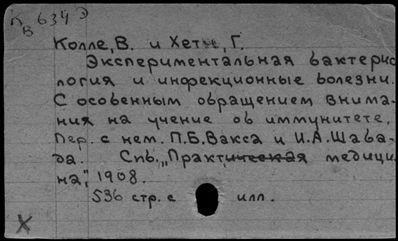 п 634 э
в
Колле, В. и Хетч, Г.
Экспериментальная бактерио
логия и инфекционные болезни.
С особенным обращением внима-
ния на учение об иммунитете.
Пер. с нем. П.Б.Вакса и И.А.Шаба-
да. Спб., „Практическая медици
на", 1908.
536 стр. с илл.
X